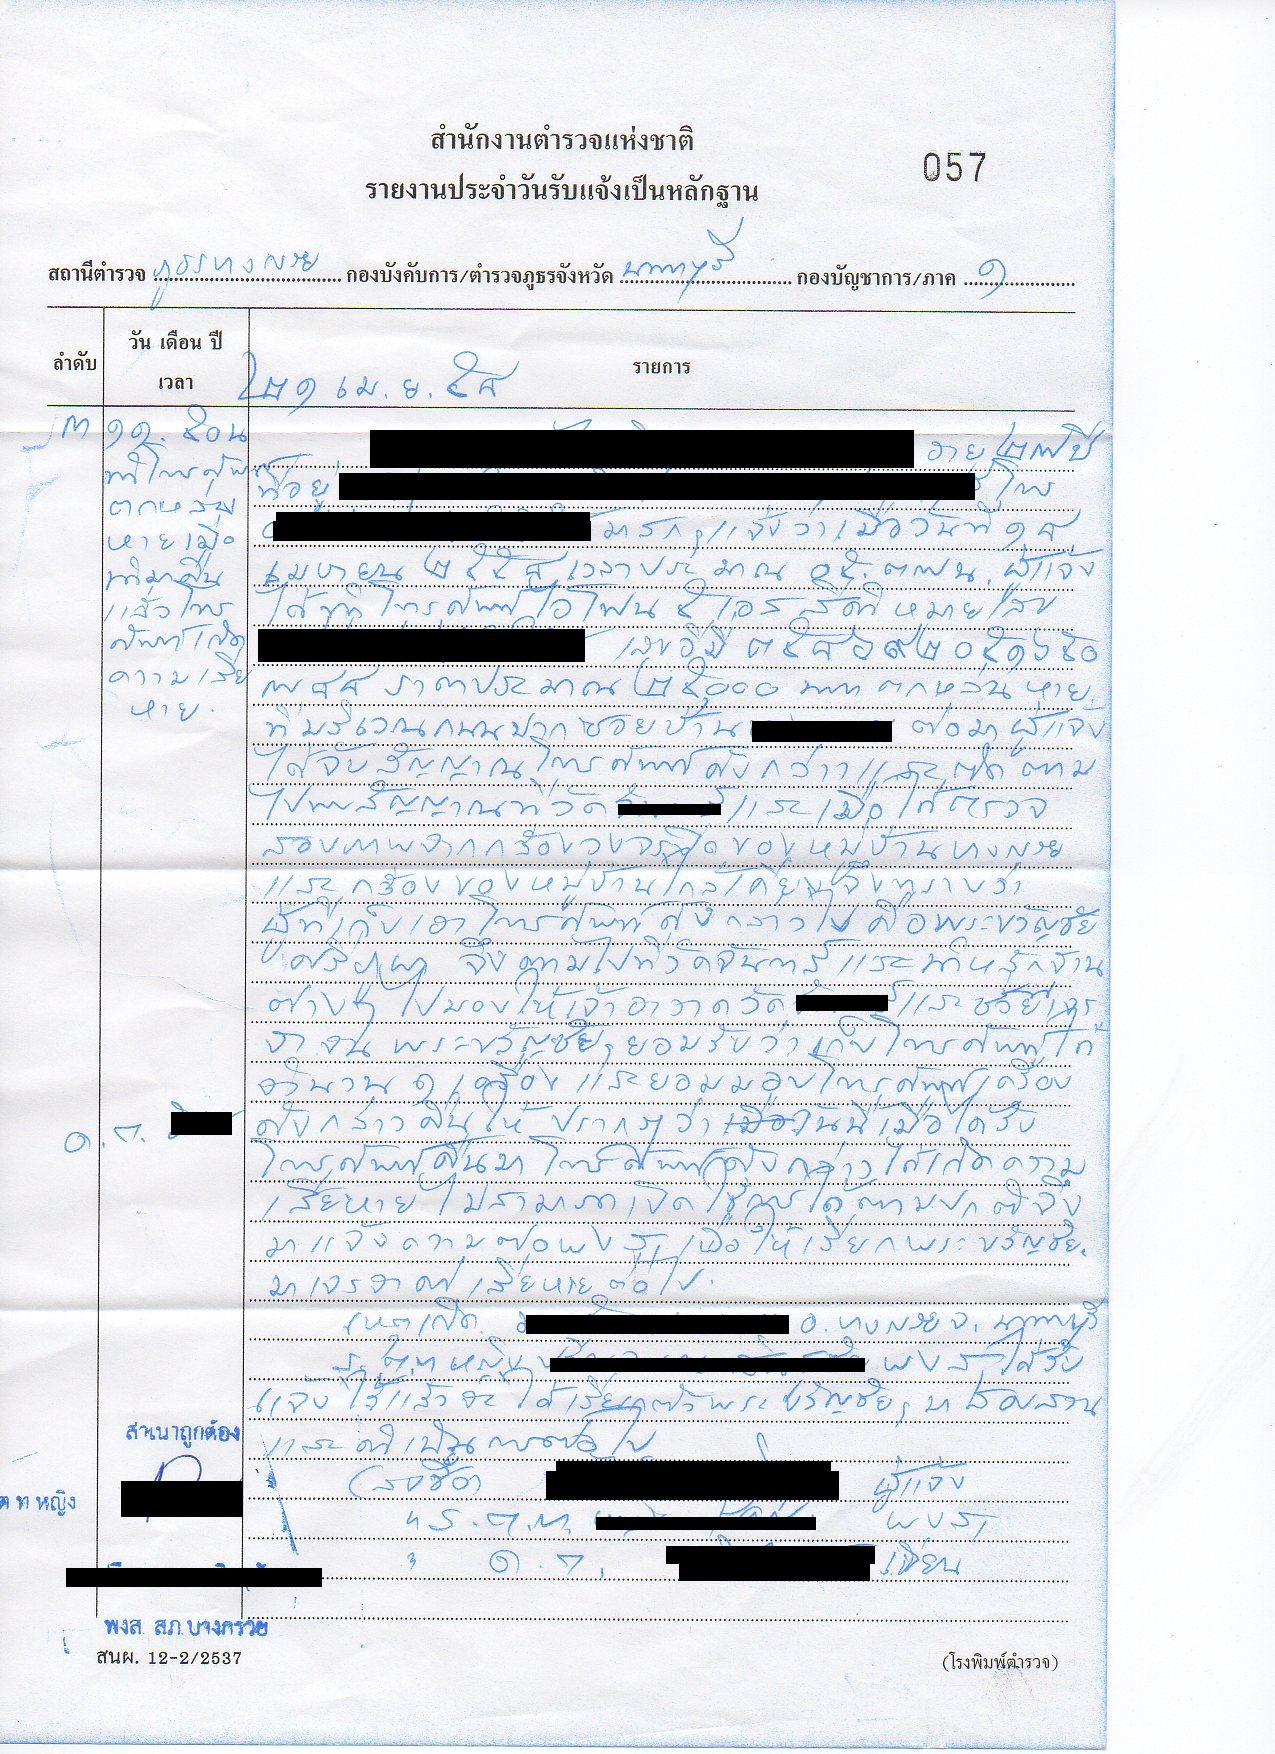 สำนักงานตำรวจแห่งชาติ
057
รายงานประจำวันรับแจ้งเป็นหลักฐาน
สถานีตำรวจ ภูธรบางกรวย กองบังคับการ/ตำรวจภูธรจังหวัด นนทบุรี กองบัญชาการ/ภาค ๑
ลำดับ
วัน เดือน ปี
เวลา
รายการ
๒๑ เม.ย. ๕๘
๓
๑๑.๕๐น
ทำโทรศัพท์
ตกหล่น
หายเมื่อ
ได้มาคืน
แล้วโทร
ศัพท์เกิด
ความเสีย
หาย.
อายุ ๒๗ปี
ที่อยู่ โทร
แจ้งว่าเมื่อวันที่ ๑๘
เมษายน ๒๕๕๘ เวลาประมาณ ผู้แจ้ง
ได้ทำโทรศัพท์ไอโฟน ๕ เอส สีดำ หมายเลข
เลขอีมี่ ๓๕๘๖๙๒๐๕๑๖๕๐
๗๘๘ ราคาประมาณ ๒๕,๐๐๐ บาท ตกหล่นหาย
ที่บริเวณถนนปากซอยบ้าน ต่อมาผู้แจ้ง
ได้จับสัญญาณโทรศัพท์ดังกล่าวและติดตาม
ไปพบสัญญาณที่วัด และเมื่อได้ตรวจ
สอบภาพจากกล้องวงจรปิดของหมู่บ้านบางกรวย
และกล้องของหมู่บ้านใกล้เคียงจึงทราบว่า
ผู้ที่เก็บเอาโทรศัพท์ดังกล่าวไปคือพระขวัญชัย
จึงตามไปที่วัดจันทร์และนำหลักฐาน
ต่างๆ ไปมอบให้เจ้าอาวาสวัด และ
จน พระขวัญชัยฯ ยอมรับว่าเก็บโทรศัพท์ได้
จำนวน ๑ เครื่อง และยอมมอบโทรศัพท์เครื่อง
ดังกล่าวคืนให้ ปรากฏว่า วันนี้เมื่อได้รับ
โทรศัพท์คืนมา โทรศัพท์ดังกล่าวได้เกิดความ
เสียหายไม่สามารถเปิดใช้การได้ตามปกติจึง
มาแจ้งความต่อพงสฯ เพื่อให้เรียกพระขวัญชัย
มาเจรจาค่าเสียหายต่อไป.
ด.ต.
เหตุเกิด อ.บางกรวย จ.นนทบุรี
พงสฯ ได้รับ
แจ้งไว้แล้วจะได้เรียกตัวพระขวัญชัยฯ มาสอบสวน
และดำเนินการต่อไป
(ลงชื่อ) ผู้แจ้ง
ร.ต.ท. พงสฯ
ด.ต. เขียน
สำเนาถูกต้อง
ต ท หญิง
พงส สภ บางกรวย
สนผ. 12-2/2537
(โรงพิมพ์ตำรวจ)